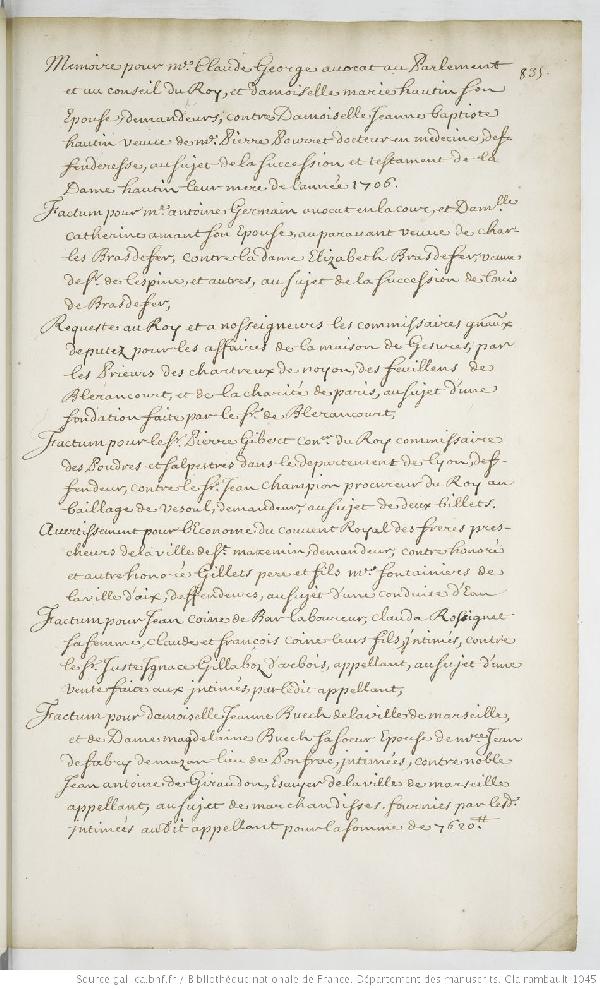 Memoire pour mr. Claude George avocat au Parlement
835.
et au conseil du Roy, et damoiselle marie hautin son
Epouse, demandeurs, contre Damoiselle Jeanne baptiste
hautin veuve de mr. Pierre Pourret docteur en medecine, def-
fenderesse, au sujet de la succession et testament de la
Dame hautin leur mere de l'année 1706.
Factum pour mr. antoine Germain avocat en la cour, et Damlle
Catherine amant son Epouse, auparavant veuve de char-
les Brasdefer, contre la dame Elizabeth Brasdefer, veuve
de sr. de lespine, et autres, au sujet de la succession de louis
de Brasdefer,
Requeste au Roy et a nosseigneurs les commissaires gnaux
deputez pour les affaires de la maison de Gesvres, par
les Prieurs des chartreux de noyon, des feuillens de
Blerancourt, et de la charité de paris, au sujet d'une
fondation faite par le sr. de Blerancourt,
Factum pour le sr. Pierre Gibert coner. du Roy commissaire
des Poudres et salpestres dans le departement de lyon, def-
fendeur, contre le sr. Jean Champion procureur du Roy au
bailliage de Vesoul, demandeur, au sujet de deux billets.
Avertissement pour l'Econome du couvent Royal des freres pres-
cheurs de la ville de st. maxemin, demandeur, contre honoré
et autre honoré Gillets pere et fils mrs. fontainieres de
la ville d'aix, deffendeurs, au sujet d'une conduite d'Eau
Factum pour Jean Coine de Bar laboureur, clauda Rossignet
sa femme, Claude et francois coine leurs fils, intimés, contre
le sr. Juste Ignace Gillaboz d'arbois, appellant, au sujet d'une
vente faite aux intimés, par ledit appellant,
Factum pour damoiselle Jeanne Buech de la ville de marseille,
et de Dame magdelaine Buech sa soeur Epouse de mre. Jean
de fabry de mazan lieu de Ponfroc, intimées, contre noble
Jean antoine de Giraudon, Escuyer de la ville de marseille
appellant, au sujet de marchandisses fournies par lesd.
intimées audit appellant pour la somme de 7620.tt
Source gallica.bnf.fr / Bibliothèque nationale de France. Département des manuscrits. Clairambault 1045